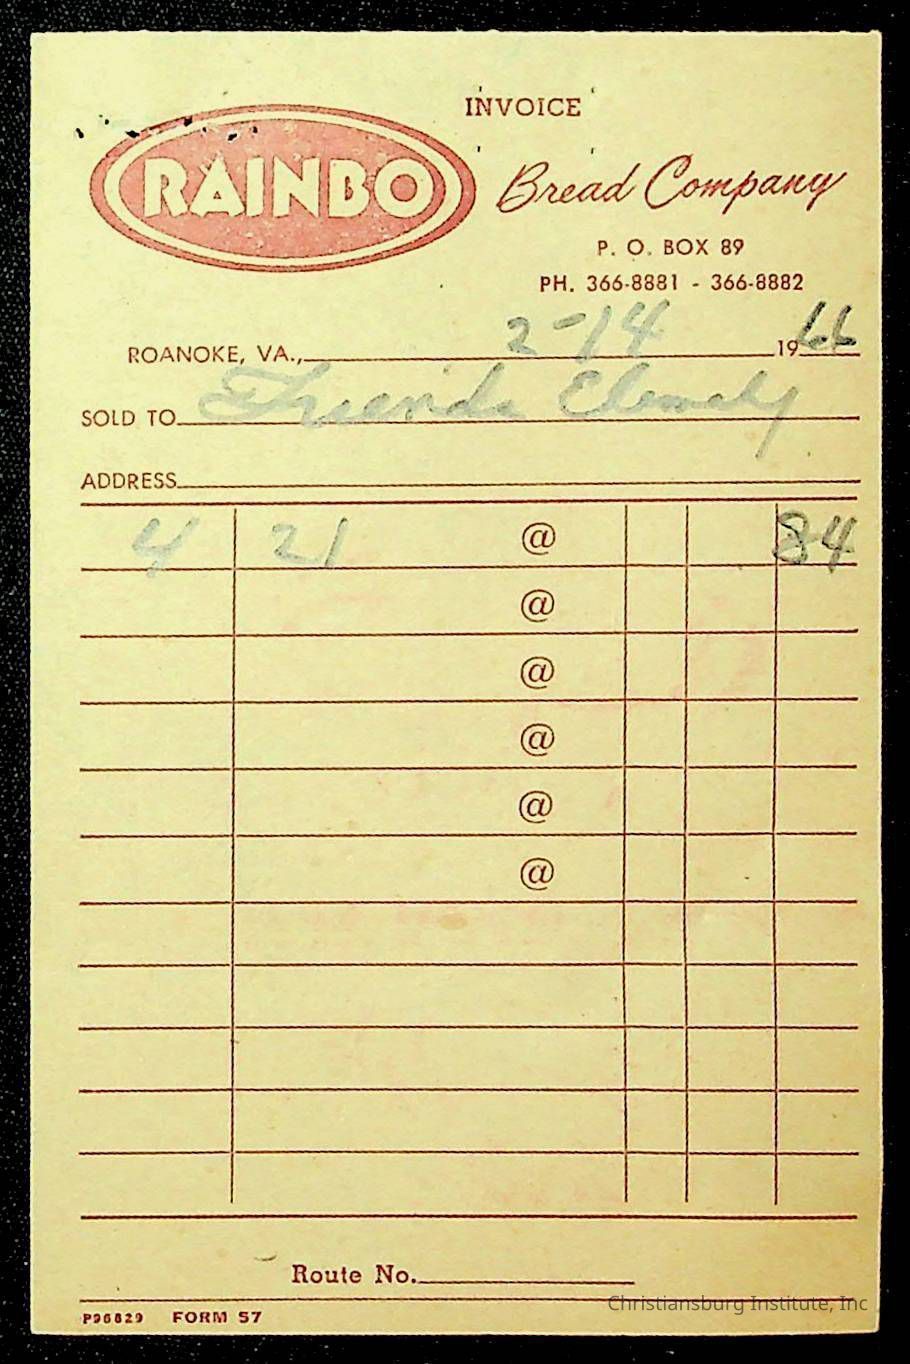 INVOICE
RAINBO
Bread Company
P. O. BOX 89
PH. 366-8881 - 366-8882
ROANOKE, VA., 2-14 1966
SOLD TO Friends Elemaly
ADDRESS
4 21 @ 84
@
@
@
@
@
Route No.
P96829 FORM 57
Christiansburg Institute, Inc